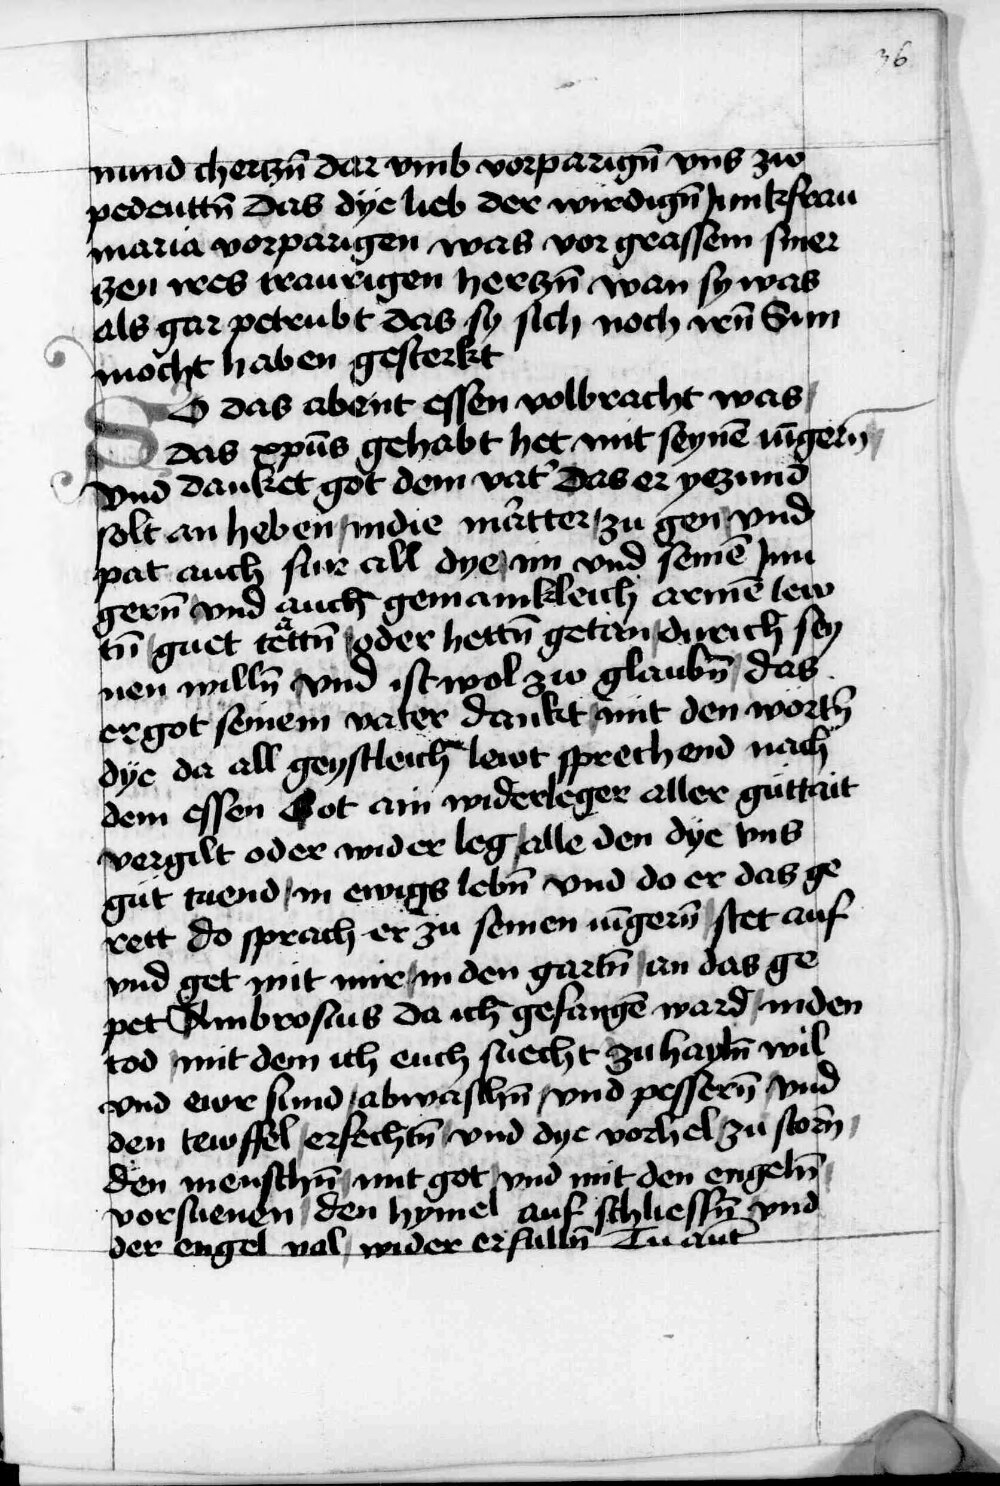 36
nund chertzn̄ dar vmb vorparign̄ vns zw
pedeuttn̄ Das dÿe lieb der wirdign̄ Junkfrau
maria vorparigen was vor grassem smer
tzen ires traurigen hertzn̄ wan sy was
als gar petrubt das sy sich noch irn̄ Sun
mocht haben gesterkt
SO das abent essen volbracht was /
das xpūs gehabt het mit seynē iūgern̄ /
vnd danket got dem vat' Das er yezund
solt an heben / indie mărtter / zu gen / vnd
pat auch fur all dye / im vnd seinē Jun
gern̄ / vnd auch gemainkleich armē lew
tn̄ / guet tetttn̄ / oder hettn̄ getan / durich sey
nen willn̄ / vnd ist wol zw glaubn̄ / das
er got seinem vater dankt / mit den worth̄
dÿe da all geystleich lewt sprechend nach
dem essen Got ain widerleger aller güttait
vergilt oder wider leg / alle den dÿe vns
güt tuend / in ewigs lebn̄ vnd do er das ge
rett do sprach er zu seinen iūgern̄ / stet auf
vnd get mit mir / in den gartn̄ / an das ge
pet Ambrosius da ich gefangē ward / inden
tod / mit dem ich euch suecht zu hayln̄ wil
vnd ewr sund / abwaschn̄ / vnd pessern̄ / vnd
den tewffel / erfechtn̄ / vnd dye vorhel zu storn̄ /
den menschn̄ / mit got / vnd mit den engeln̄ /
vorsuenen / den hymel auf schliessn̄ vnd
der engel val / wider erfulln̄ Tu aūt